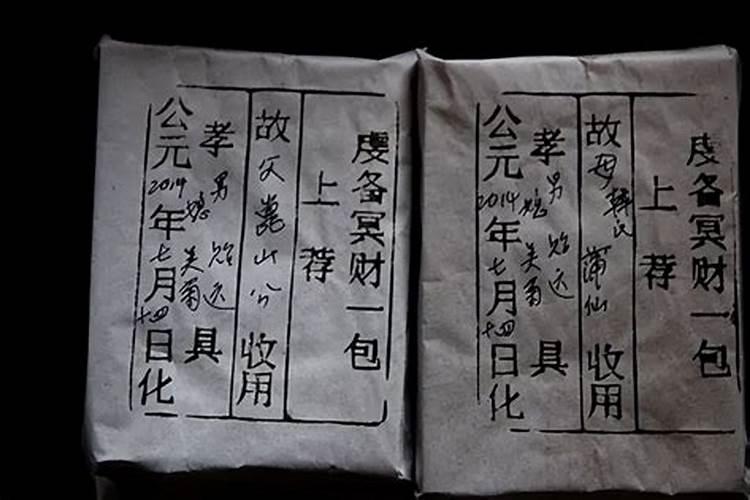 虔备冥财一包
上荐
故父嵩山公收用
孝男 贻远 具
媳 美菊
公元2014年七月十四日化
虔备冥财一包
上荐
故母韩氏蒲仙收用
孝男 贻远 具
媳 美菊
公元2014年七月十四日化